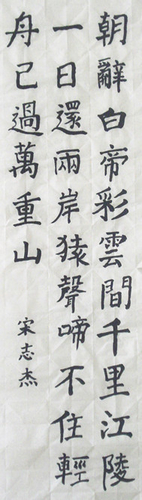 朝辭白帝彩雲間千里江陵
一日還兩岸猿聲啼不住輕
舟已過萬重山
宋志杰